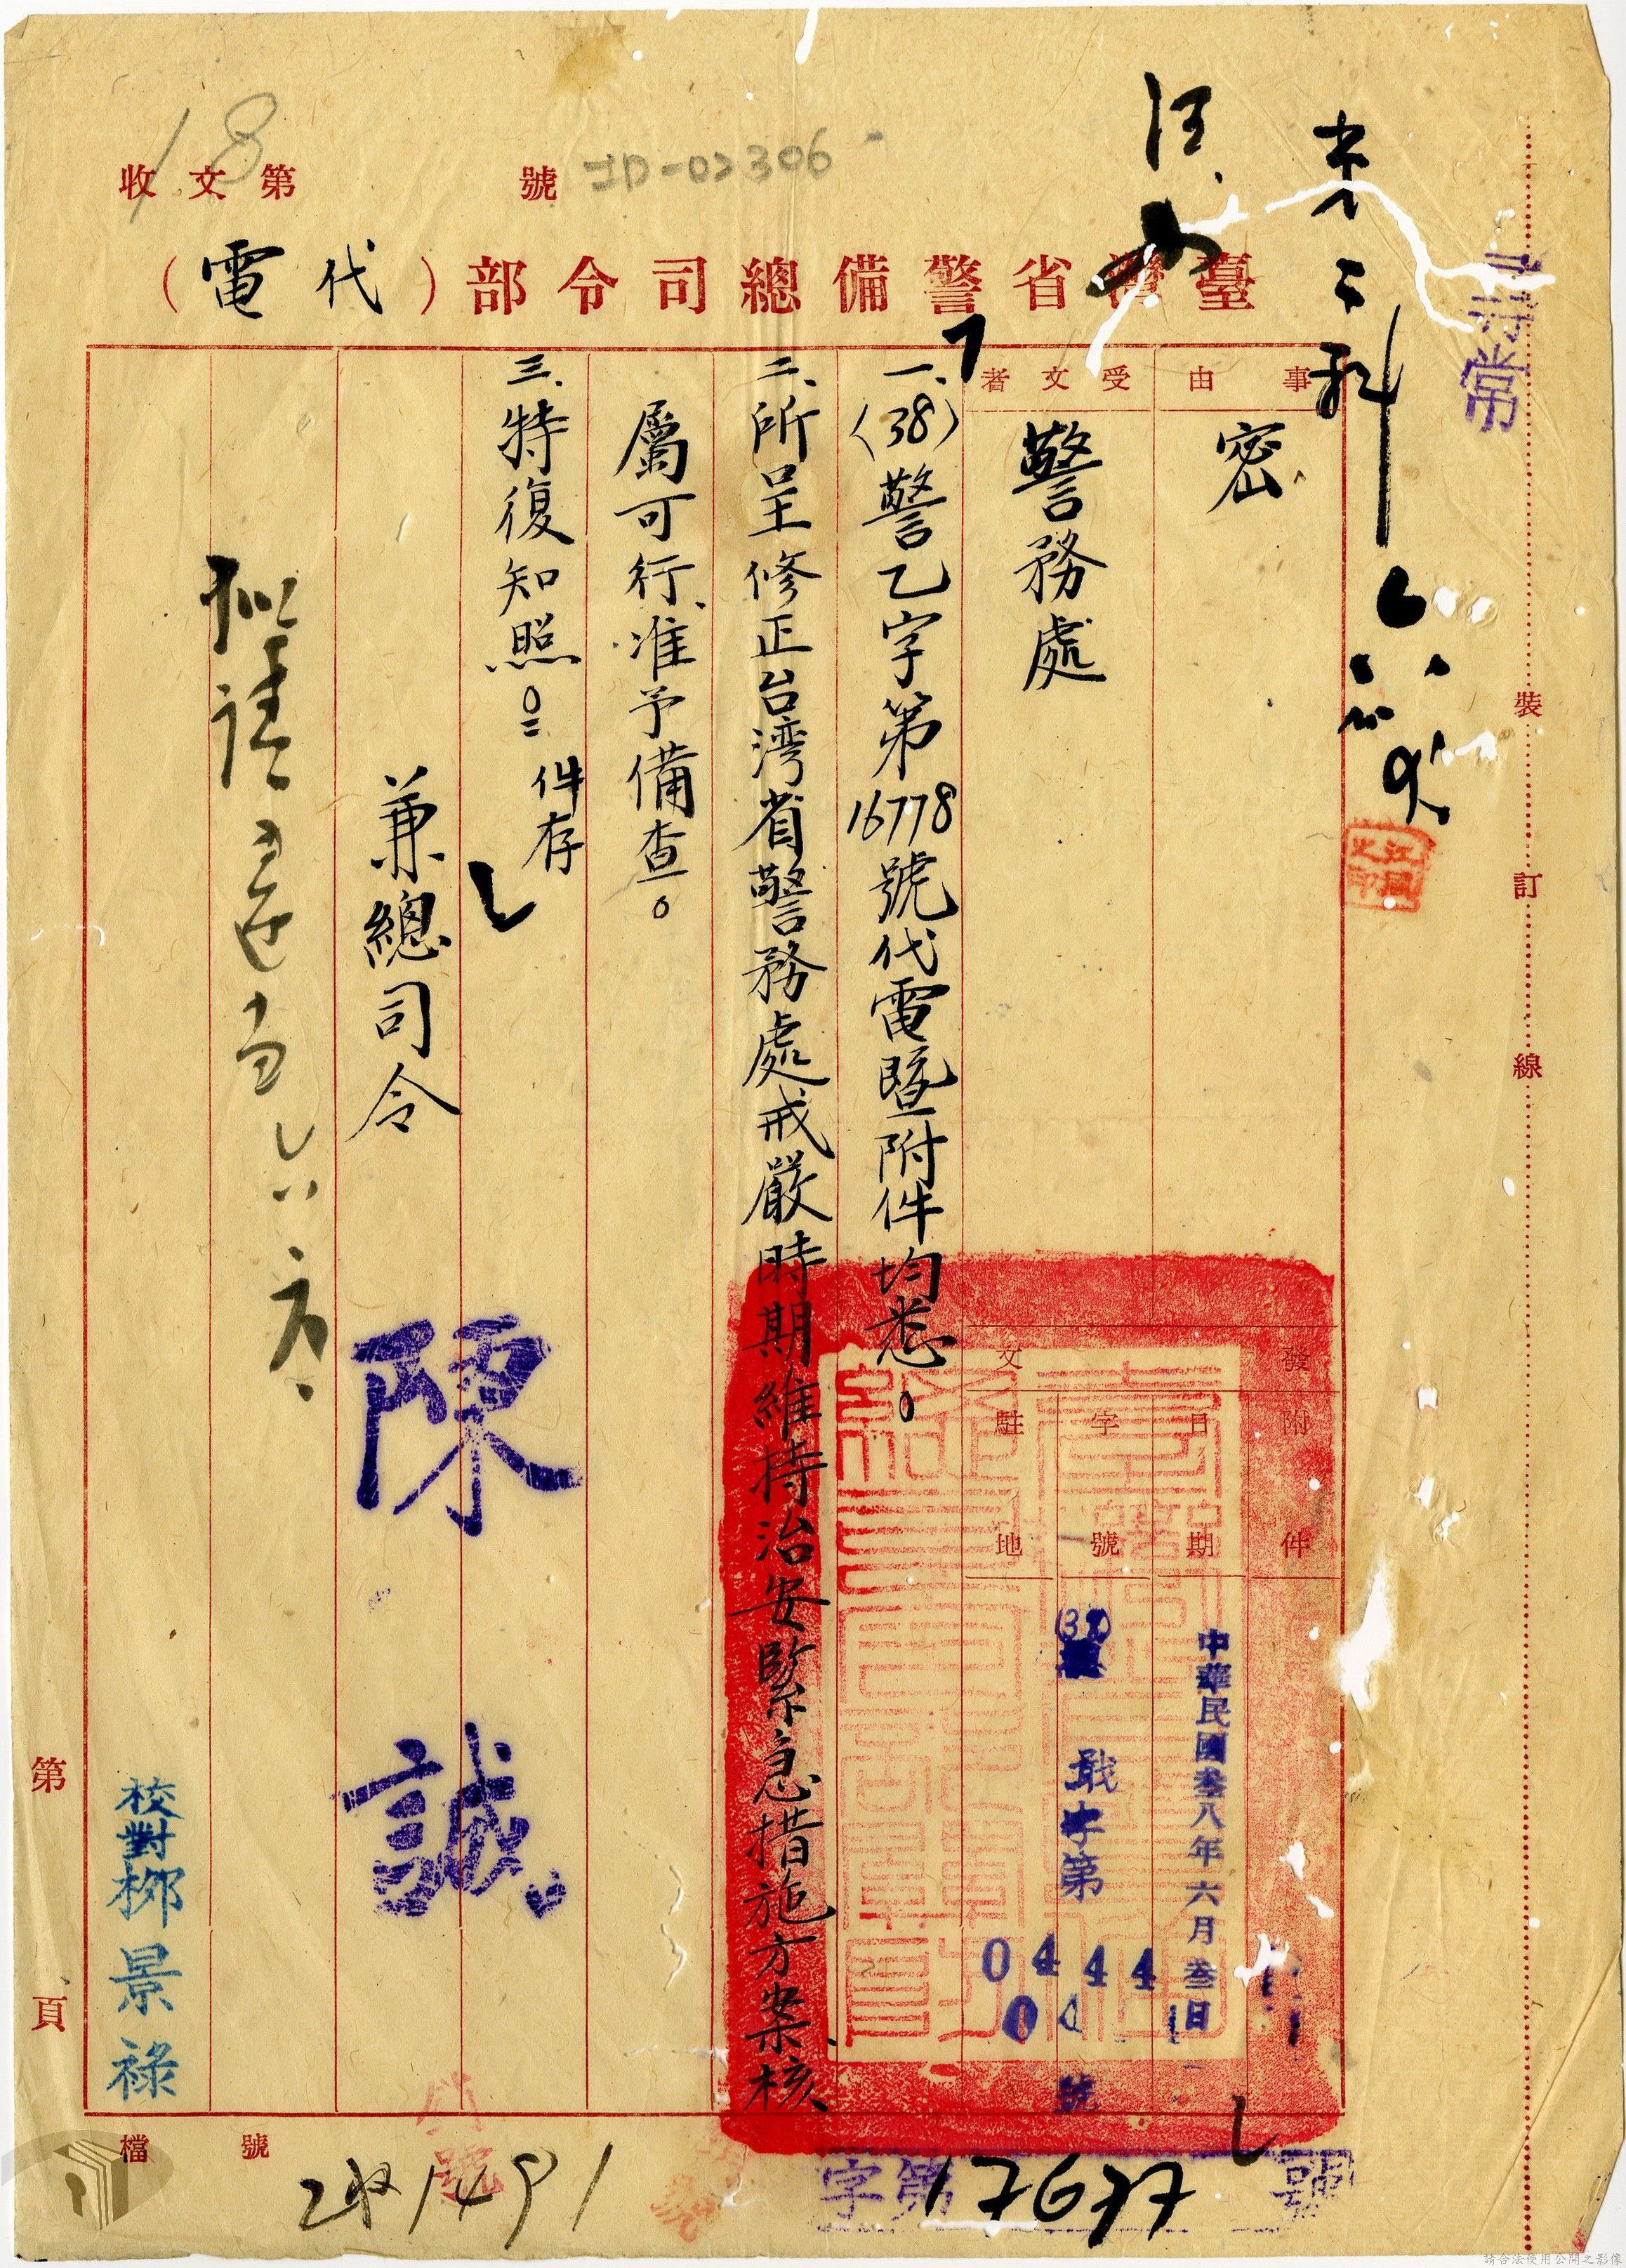 收文第　號
ID-02306
18
臺灣省警備總司令部（代電）
事由
密
受文者
警務處
發文
附件
日期
中華民國叁八年六月叁日
字號
戰字第
0444
號
駐地
一、（38）警乙字第16778號代電暨附件均悉。
二、所呈修正台湾省警務處戒嚴時期維持治安緊急措施方案核
屬可行、准予備查。
三、特復知照。
件存
兼總司令
陳誠
校對柳景祿
第　頁
檔號
裝訂線
字第17677號
請合法使用公開之影像